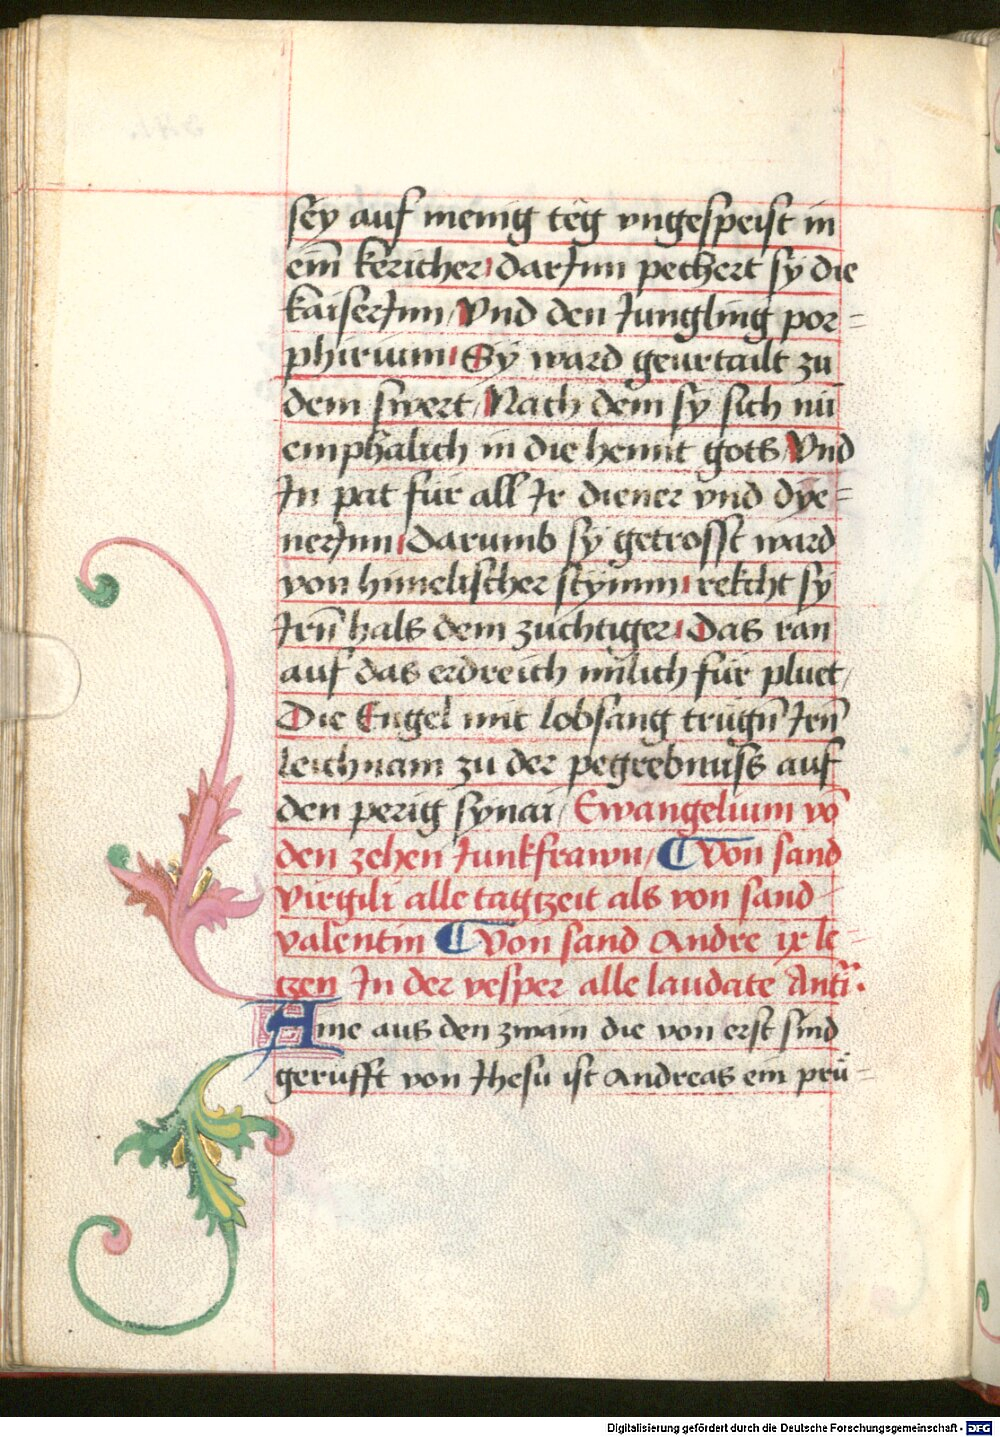 sey auf menig teg vngespeist in
ein kericher darJnn pechert sy die
kaiserJnn / Vnd den Jungling por=
phirium Sy ward geurtailt zu
dem swert / Nach dem sy sich nu
emphalich in die hennt gots Vnd
Jn pat für all Jr diener vnd dye=
nerJnn darumb sy getrosst ward
von himelischer stymm rekcht sy
Jrn̄ hals dem zuchtiger Das ran
auf das erdreich milich für pluet /
Die Engel mit lobsang trugn̄ Jrn̄
leichnam zu der pegrebnuss auf
den perig synai / Ewangelium vō
den zehen Junkfrawn / ¶ Von sand
Virgili alle tagtzeit als von sand
valentin ¶ Von sand Andre ix le=
tzen Jn der vesper alle laudate Anti.
Aine aus den zwain die von erst sind
gerufft von Jhesu ist Andreas ein prü=
Digitalisierung gefördert durch die Deutsche Forschungsgemeinschaft - DFG